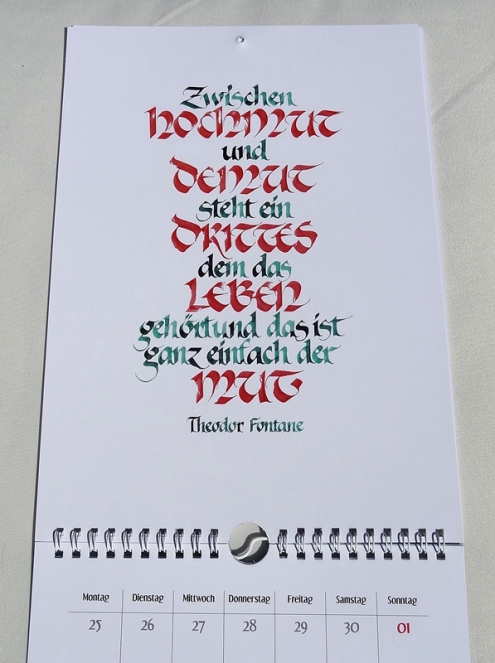 Zwischen
HOCHMUT
und
DEMUT
steht ein
DRITTES
dem das
LEBEN
gehört und das ist
ganz einfach der
MUT
Theodor Fontane
Montag Dienstag Mittwoch Donnerstag Freitag Samstag Sonntag
25 26 27 28 29 30 01